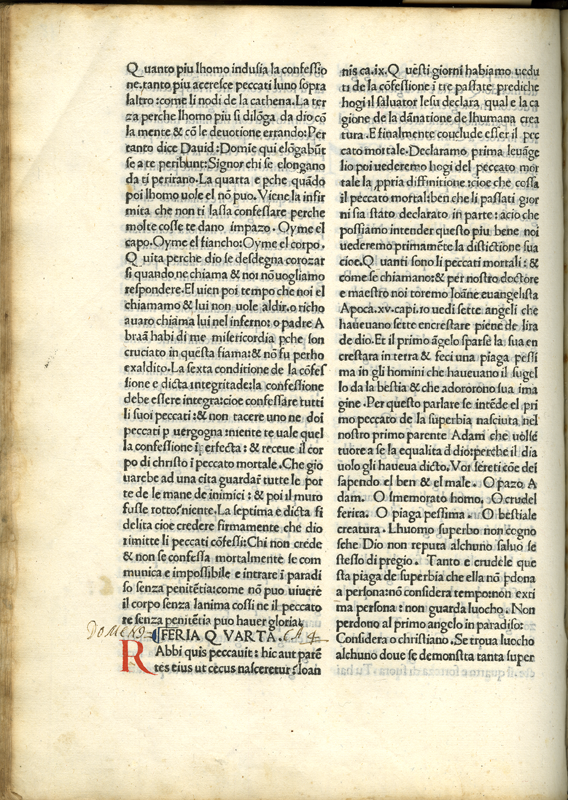 Quanto piu lhomo indusia la confessio
ne, tanto piu accresce peccati luno sopra
laltro: come li nodi de la cathena. La ter
za perche lhomo piu si dilõga da dio cõ
la mente & cõ le deuotione errando: Per
tanto dice Dauid: Domie qui elõgabũt
se a te peribunt: Signor chi se elongano
da ti perirano. La quarta e pche quãdo
poi lhomo uole el nõ puo. Viene la infir
mita che non ti lassa confessare perche
molte cosse te dano impazo. Oyme el
capo. Oyme el fiancho: Oyme el corpo.
Quita perche dio se desdegna corozar
si quando ne chiama & noi nõ uogliamo
respondere. El uien poi tempo che noi el
chiamamo & lui non uole aldir. o richo
auaro chiama lui nel inferno: o padre A
braã habi di me misericordia pche son
cruciato in questa fiama: & nõ fu perho
exaldito. La sexta conditione de la cõfes
sione e dicta integritade: la confessione
debe essere integra: cioe confessare tutti
li suoi peccati: & non tacere uno ne doi
peccati p uergogna: niente te uale quel
la confessione ĩperfecta: & receue il cor
po di christo ĩ peccato mortale. Che gio
uarebe ad una cita guardar tutte le por
te de le mane de inimici: & poi il muro
fusse rotto? niente. La septima e dicta fi
delita cioe credere firmamente che dio
rimitte li peccati cõfessi: Chi non crede
& non se confessa mortalmente se com
munica e impossibile e intrare ĩ paradi
so senza penitẽtia: come nõ puo uiuere
il corpo senza lanima cossi ne il peccato
re senza penitẽtia puo hauer gloria.
FERIA QVARTA.
Rabbi quis peccauit: hic aut parẽ
tes eius ut cecus nasceretur? Ioan
nis ca. ix. Questi giorni habiamo uedu
ti de la cõfessione i tre passate prediche
hogi il saluator Iesu declara qual e la ca
gione de la dãnatione de lhumana crea
tura. E finalmente couclude esser il pec
cato mortale. Declaramo prima leuãge
lio poi uederemo hogi del peccato mor
tale la ppria diffinitione: cioe che cossa
il peccato mortal: ben che li passati gior
ni sia stato declarato in parte: acio che
possiamo intender questo piu bene noi
uederemo primamẽte la distictione sua
cioe. Quanti sono li peccati mortali: &
come se chiamano: & per nostro doctore
e maestro noi toremo Ioãne euangelista
Apoca. xv. capi. ro uedi sette angeli che
haueuano sette encrestare piene de lira
de dio. Et il primo ãgelo sparse la sua en
crestara in terra & feci una piaga pessi
ma in gli homini che haueuano il sugel
lo da la bestia & che adororono sua ima
gine. Per questo parlare se intẽde el pri
mo peccato de la superbia nasciuta nel
nostro primo parente Adam che uolse
tuore a se la equalita d dio: perche il dia
uolo gli haueua dicto. Voi sereti cõe dei
sapendo el ben & el male. O pazo A
dam. O smemorato homo. O crudel
ferita. O piaga pessima. O bestiale
creatura. Lhuomo superbo non cogno
sche Dio non reputa alchuno saluo se
stesso di pregio. Tanto e crudele que
sta piaga de superbia che ella nõ pdona
a persona: nõ considera tempo: non exti
ma persona: non guarda luocho. Non
perdono al primo angelo in paradiso:
Considera o christiano. Se troua luocho
alchuno doue se demonstta tanta super